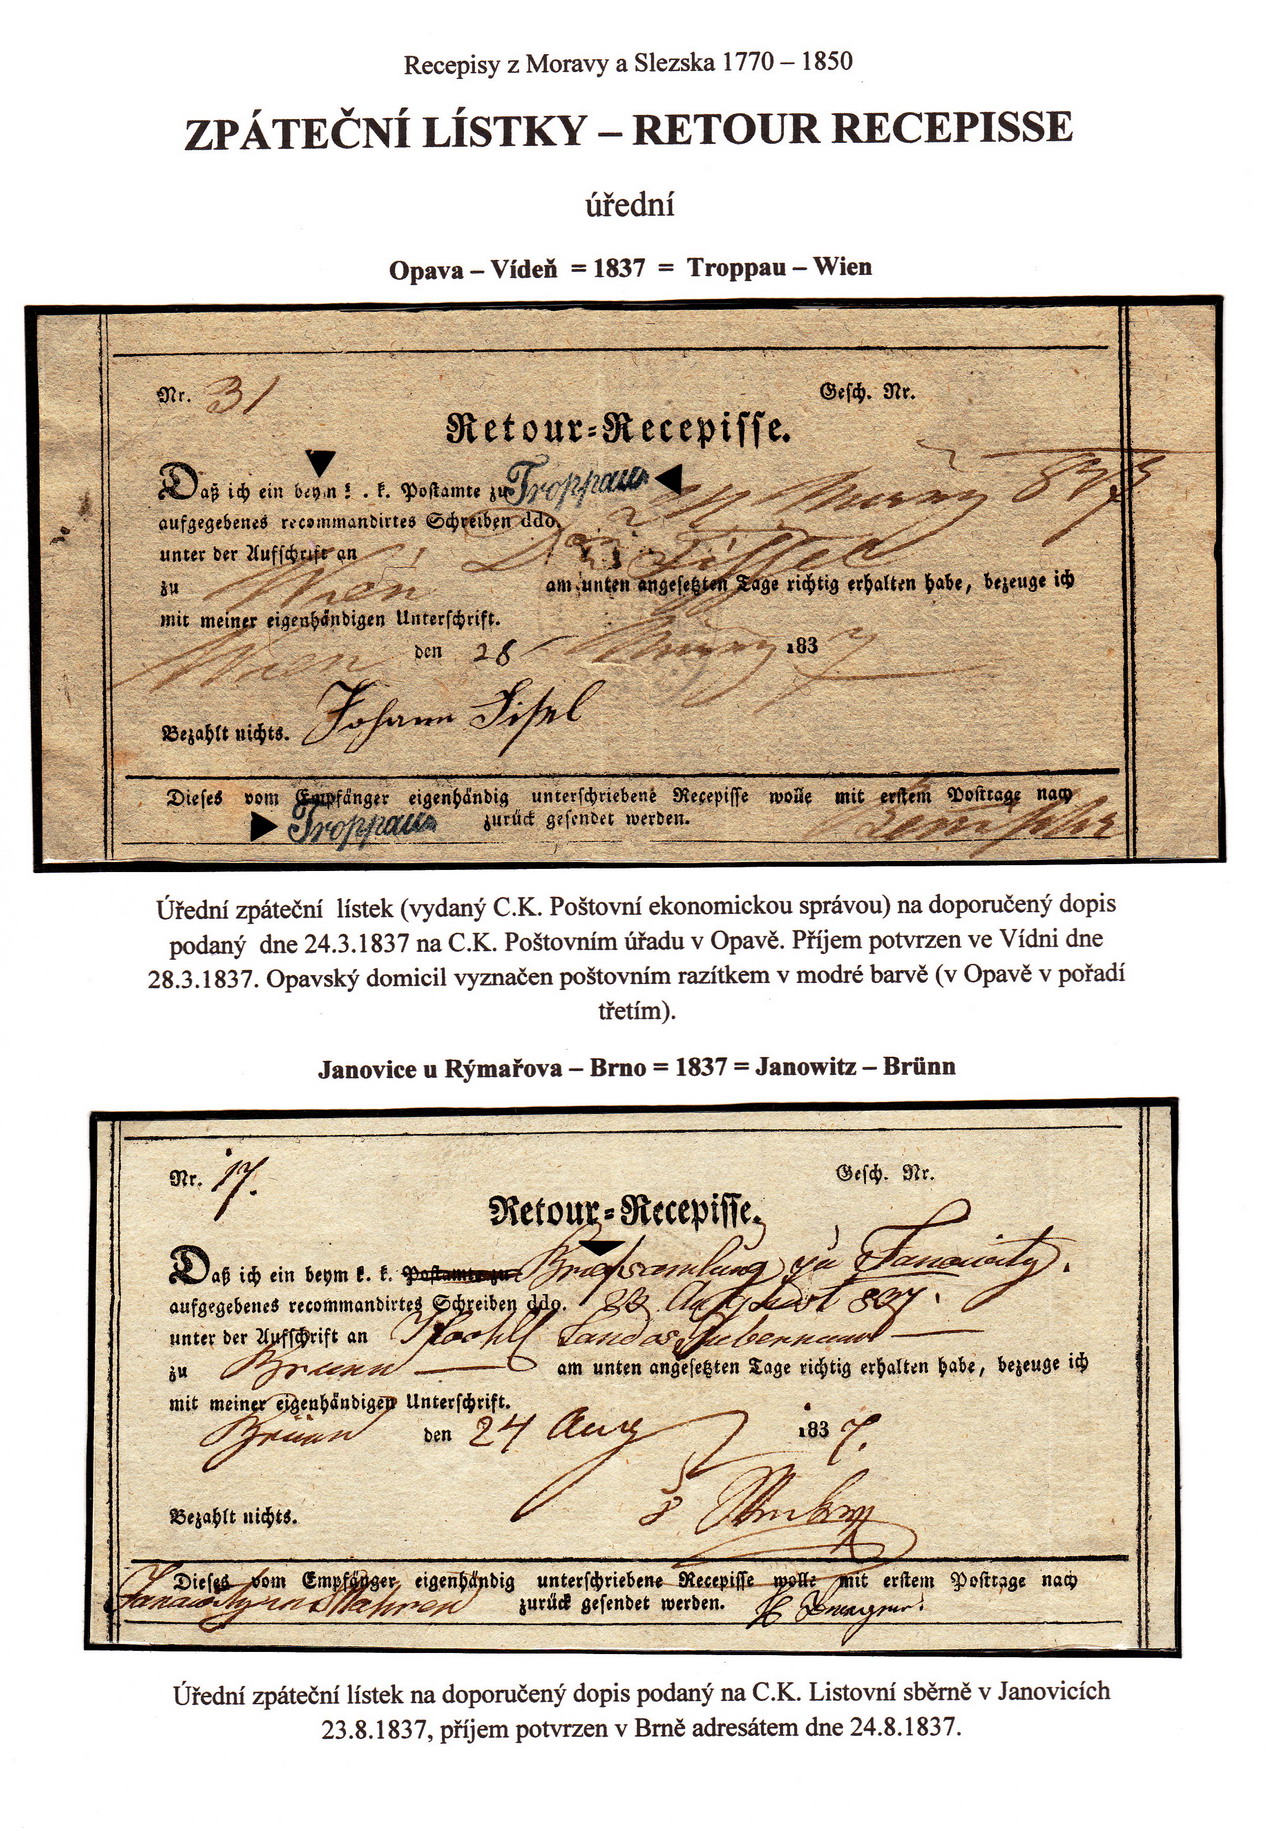 Recepisy z Moravy a Slezska 1770 – 1850
ZPÁTEČNÍ LÍSTKY – RETOUR RECEPISSE
úřední
Opava – Vídeň = 1837 = Troppau – Wien
Nr. 31 Gesch. Nr.
Retour-Recepisse.
Daß ich ein beym k. k. Postamte zu Troppau
aufgegebenes recommandirtes Schreiben ddo. 24 837
unter der Aufschrift an
zu Wien am unten angesetzten Tage richtig erhalten habe, bezeuge ich
mit meiner eigenhändigen Unterschrift.
Wien den 28 1837
Bezahlt nichts. Johann
Dieses vom Empfänger eigenhändig unterschriebene Recepisse wolle mit erstem Posttage nach
Troppau zurück gesendet werden.
Úřední zpáteční lístek (vydaný C.K. Poštovní ekonomickou správou) na doporučený dopis
podaný dne 24.3.1837 na C.K. Poštovním úřadu v Opavě. Příjem potvrzen ve Vídni dne
28.3.1837. Opavský domicil vyznačen poštovním razítkem v modré barvě (v Opavě v pořadí
třetím).
Janovice u Rýmařova – Brno = 1837 = Janowitz – Brünn
Nr. 17. Gesch. Nr.
Retour-Recepisse.
Daß ich ein beym k. k. Postamte zu Briefsamlung zu Janowitz.
aufgegebenes recommandirtes Schreiben ddo. 23 August 837.
unter der Aufschrift an Landes Gubernium
zu Brünn am unten angesetzten Tage richtig erhalten habe, bezeuge ich
mit meiner eigenhändigen Unterschrift.
Brünn den 24 Aug 1837.
Bezahlt nichts.
Dieses vom Empfänger eigenhändig unterschriebene Recepisse wolle mit erstem Posttage nach
Janowitz in Mähren zurück gesendet werden.
Úřední zpáteční lístek na doporučený dopis podaný na C.K. Listovní sběrně v Janovicích
23.8.1837, příjem potvrzen v Brně adresátem dne 24.8.1837.